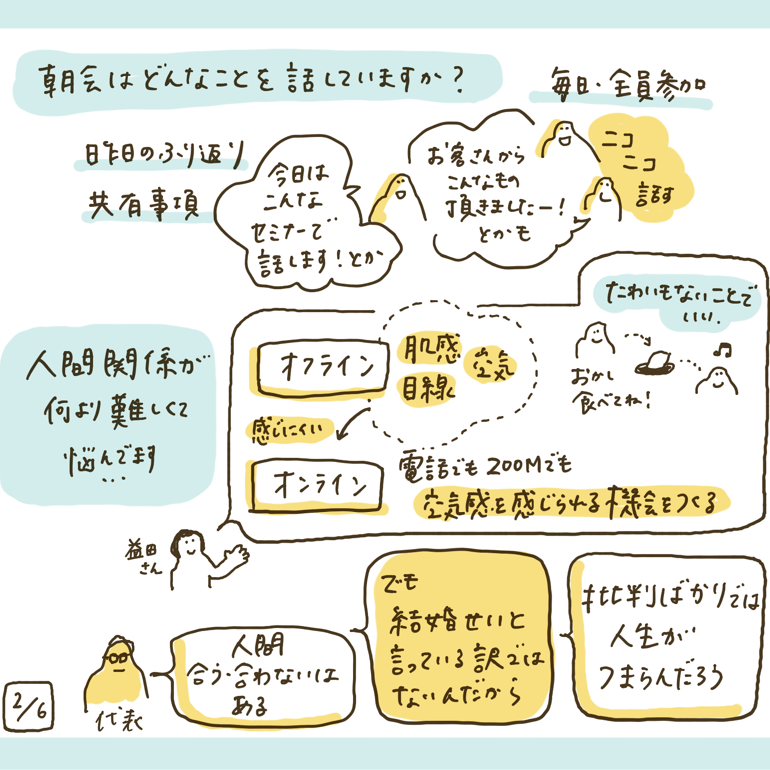 朝会はどんなことを話していますか？
毎日・全員参加
昨日のふり返り
共有事項
今日は
こんな
セミナーで
話します！とか
お客さんから
こんなもの
頂きましたー！
とかも
ニコ
ニコ
話す
人間関係が
何より難しくて
悩んでます
...
オフライン
肌感
空気
目線
感じにくい
オンライン
電話でもZOOMでも
空気感を感じられる機会をつくる
たわいもないことで
いい．
おかし
食べてね！
益田
さん
代表
人間
合う・合わないは
ある
でも
結婚せいと
言っている訳では
ないんだから
批判ばかりでは
人生が
つまらんだろう
2/6